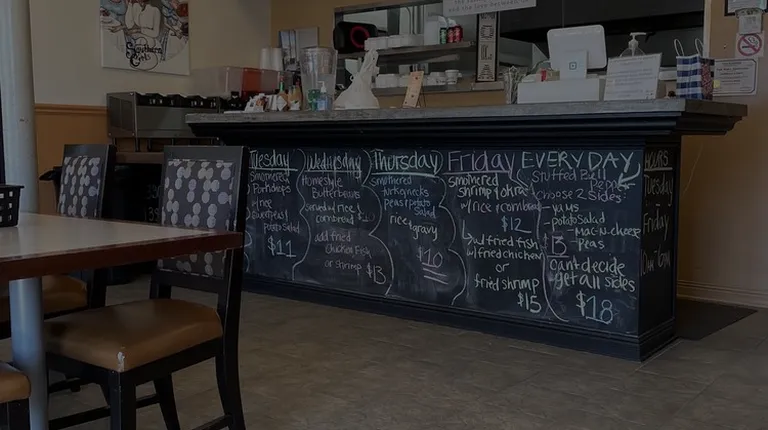 Southern Girl
Tuesday
smothered
Porkchops
w/rice
sweet peas/
potato
salad
$11
Wednesday
Homestyle
Butterbeans
served w/rice
cornbread
add fried
chicken, Fish
or shrimp $13
Thursday
smothered
turkeynecks
peas/potato
salad
rice+
gravy
$10
Friday
smothered
shrimp/okra
w/rice+cornbread
$12
w/fried fish
w/fried chicken
or
fried shrimp
$15
EVERYDAY
Stuffed Bell
Pepper
choose 2 Sides:
-yams
-potato salad
-mac-n-cheese
-peas
$13
can't decide
get all sides
$18
HOURS
Tuesday
Friday